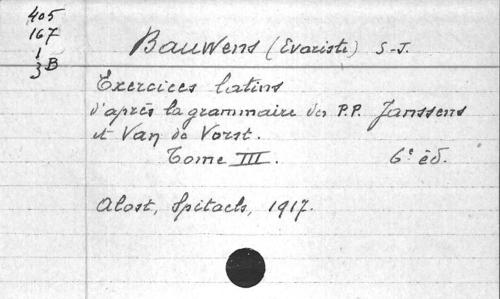 405
167
1
3B
Bauwens (Evariste) S-J.
Exercices latins
d'après la grammaire des P.P. Janssens
et Van de Vorst.
Tome III. 6e éd.
Alost, Spitaels, 1917.